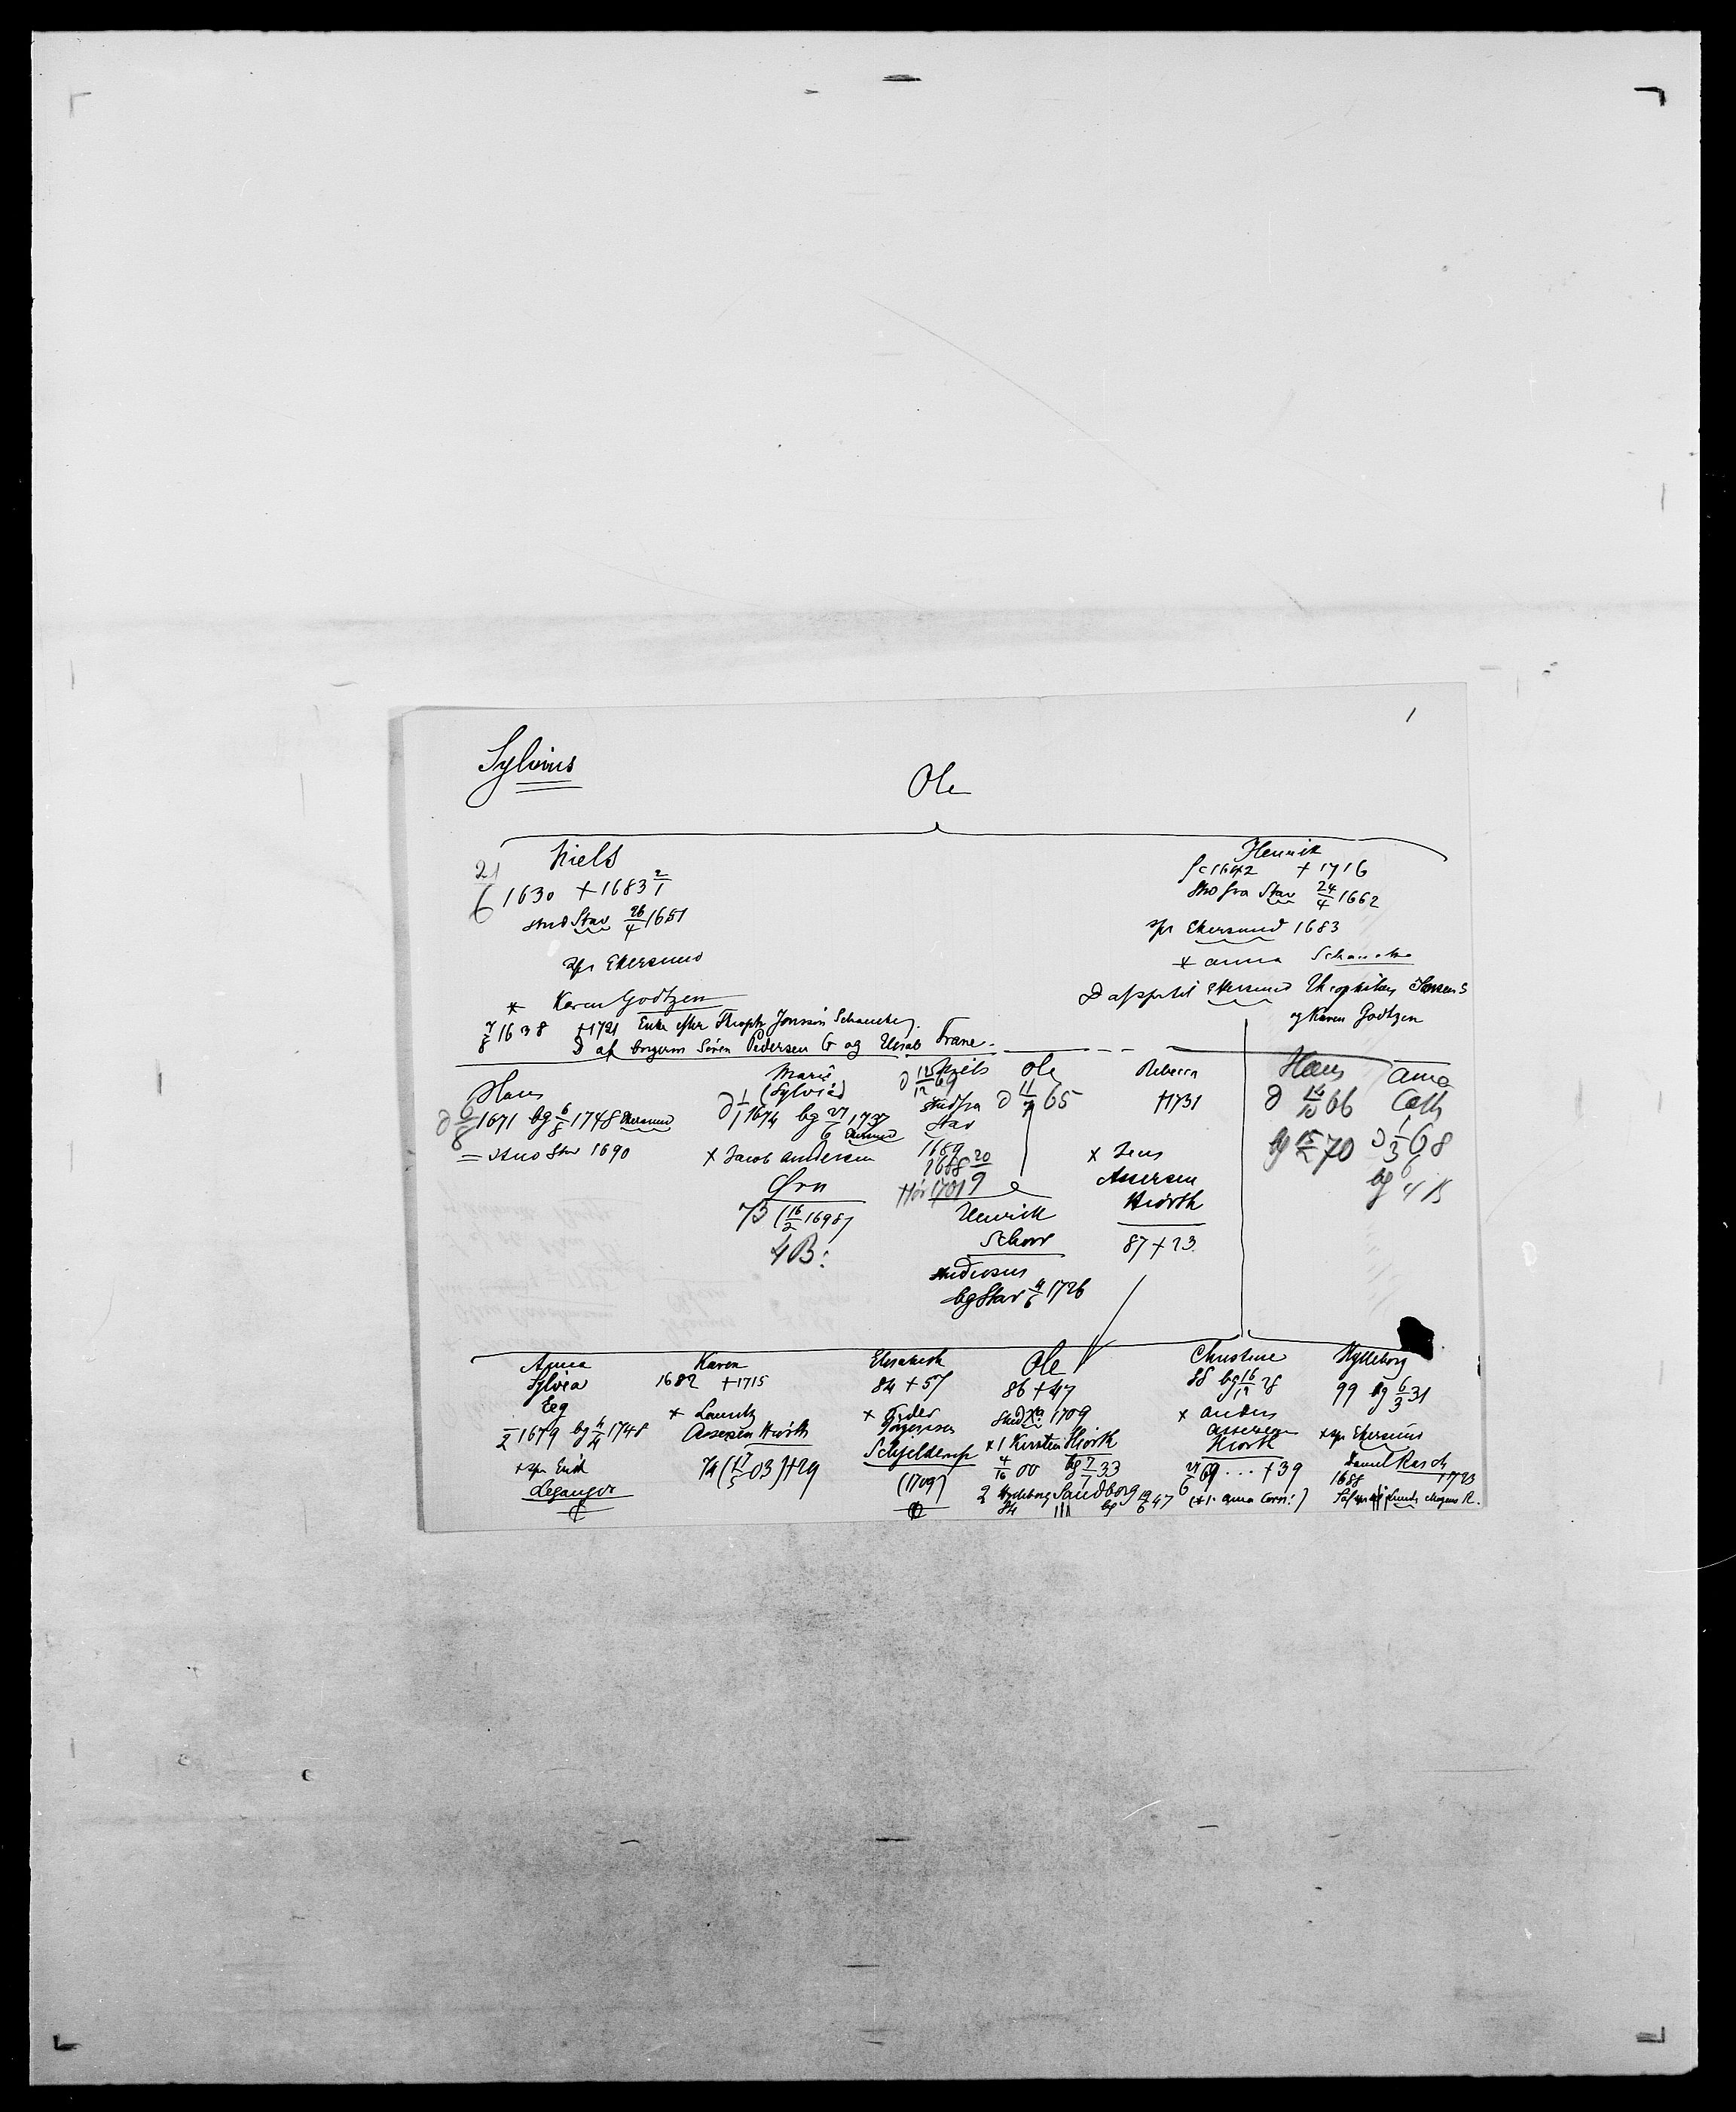 1
Sylvius
Ole
Niels
21/6 1630 + 1683 2/1
stud Stav 26/4 1651
spr Ekersund
* Karen Godtzen
7/8 1638 +1721 Enke efter Theoph Jonssøn Schancke
D af borgerm Søren Pedersen G og Elisab Trane.
Henrik
fc 1642 + 1716
stud fra Stav 24/4 1662
spr Ekersund 1683
* Anna Schancke
D af sp til Ekersund Theophilus Jonsen S
og Karen Godtzen
Hans
1671 bg 6/5 1748 Ekersund
= stud Stav 1690
Marie
(Sylvia)
D 1/1 1674 bg 27/6 1737
Ekersund
x Jacob Andersen
Ørn
73 (16/2 1698)
4 B:
Niels
D 12/12 69
stud fra
Stav
1689
1688 20/9
Ole
D 11/7 65
Henrick
Schow
studiosus
bg Stav 4/6 1726
Rebecca
+1731
x Jens
Assersen
Hiorth
87 + 23
Hans
D 16/10 66
bg 15/2 70
Anna
Cath
D 1/3 68
bg 6/4
Anna
Sylvia
Eeg
1679 bg 4/4 1748
+ spr Erich
Leganger
Karen
1682 +1715
* Lauritz
Assersen Hiorth
74 (17/5 03) +29
Elisabeth
84 + 57
x Peder
Jørgensen
Schjelderup
(1709)
Ole
86 + 47
stud 1709
x 1 Kirsten Hiorth
00 bg 7/7 33
2 Hylleborg Sandborg
84 bg 19/6 47
Christine
88 bg 16/12 28
x Anders
Assersen
Hiorth
69 ... +39
(x 1. Anna Corn:)
Hylleborg
99 bg 6/3 31
x spr Ekersund
Daniel Rasch
1688 1723
Lunds Mogens R.